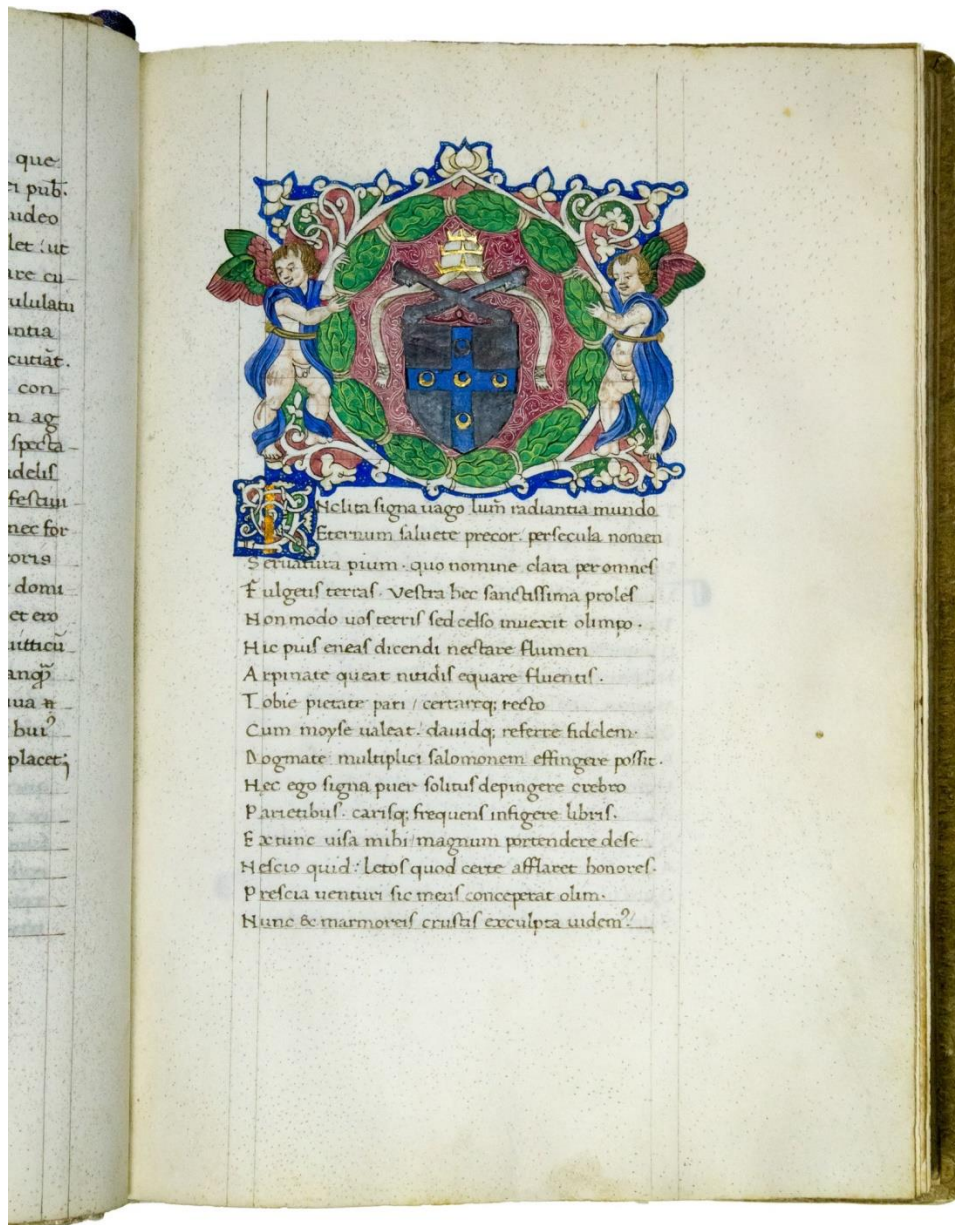 que
audeo
let ut
are cu
ululatu
antia
cutiāt.
con
m ag
specta
delis
festiui
nec for
toris
domi
et ero
ua
bui?
placet;
INclita signa uago lum̄ radiantia mundo
Eternum saluete precor. persecula nomen
Seruatura pium. quo nomine clara per omnes
Fulgetis terras. Vestra hec sanctissima proles
Non modo uos terris sed celso inuexit olimpo.
Hic pius eneas dicendi nectare flumen
Arpinate queat nitidis equare fluentis.
Tobie pietate pari / certareq; recto
Cum moyse ualeat. dauidq; referre fidelem.
Dogmate multiplici salomonem effingere possit.
Hec ego signa puer solitus depingere crebro
Parietibus. carisq; frequens infigere libris.
Ex tunc uisa mihi magnum portendere dese
Nescio quid: letos quod certe afflaret honores.
Prescia uenturi sic mens conceperat olim.
Nunc & marmoreis crustis exculpta uidem?